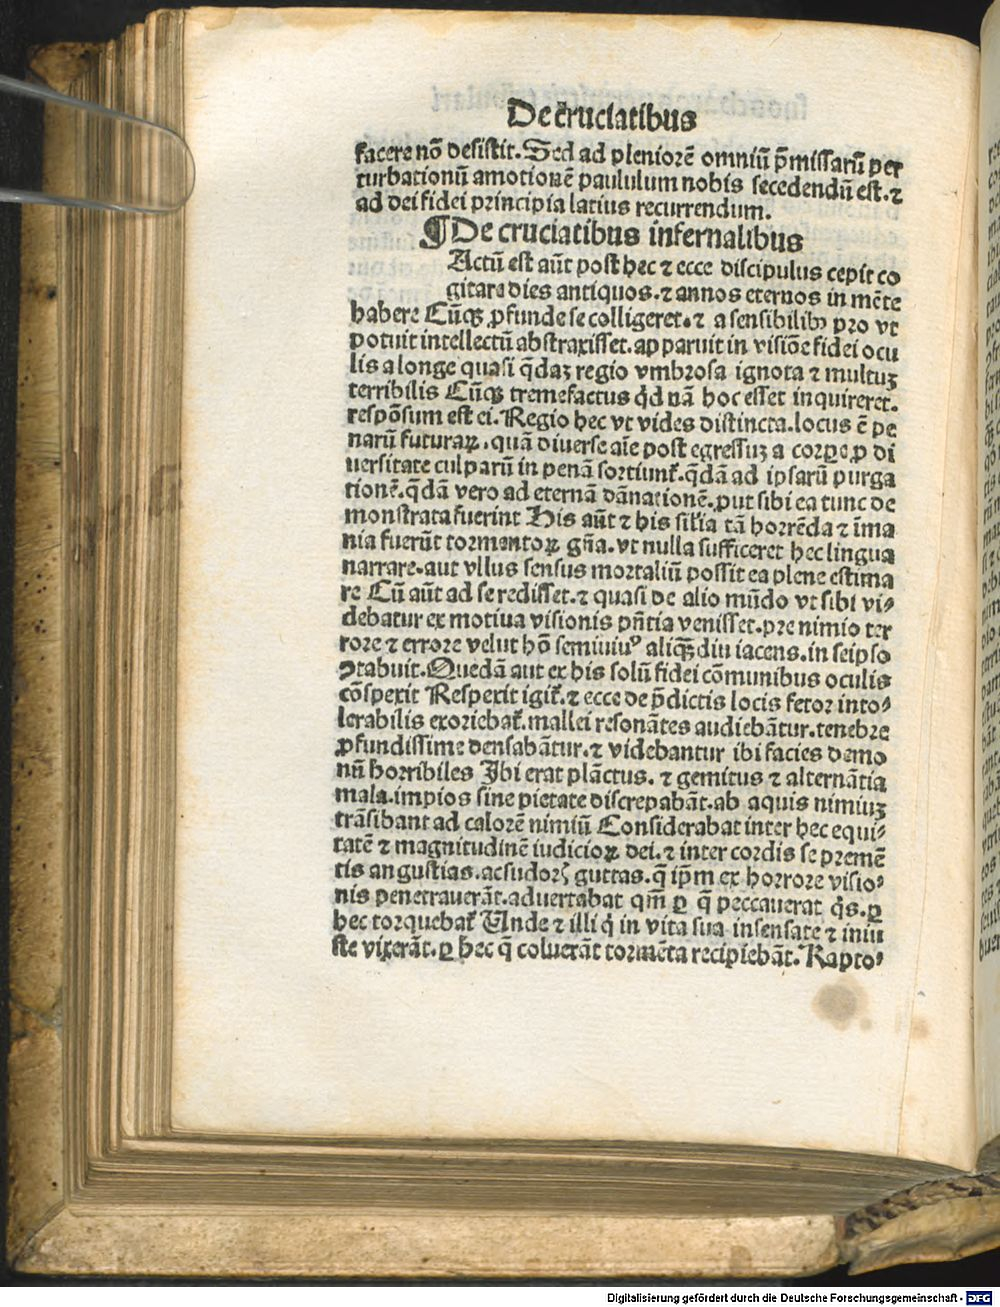 De cruciatibus
facere nō desistit. Sed ad pleniorē omniū p̄missarū per
turbationū amotionē paululum nobis secedendū est. ⁊
ad dei fidei principia latius recurrendum.
¶ De cruciatibus infernalibus
Actū est aūt post hec ⁊ ecce discipulus cepit co
gitare dies antiquos. ⁊ annos eternos in mēte
habere Cūqꝫ ꝓfunde se colligeret. ⁊ a sensibilibꝰ pro vt
potuit intellectū abstraxisset. apparuit in visiōe fidei ocu
lis a longe quasi q̄daꝫ regio vmbrosa ignota ⁊ multuꝫ
terribilis Cūqꝫ tremefactus qͥd nā hoc esset inquireret.
respōsum est ei. Regio hec vt vides distincta. locus ē pe
narū futuraꝝ. quā diuerse aīe post egressuꝫ a corꝑe ꝓ di
uersitate culparū in penā sortiunt᷑. q̄dā ad ipsarū purga
tionē. q̄dā vero ad eternā dānationē. put sibi ea tunc de
monstrata fuerint His aūt ⁊ his sil̄ia tā horrēda ⁊ īma
nia fuerūt tormentoꝝ gn̄a. vt nulla sufficeret hec lingua
narrare. aut vllus sensus mortaliū possit ea plene estima
re Cū aūt ad se redisset. ⁊ quasi de alio mūdo vt sibi vi⸗
debatur ex motiua visionis pn̄tia venisset. pre nimio ter
rore ⁊ errore velut hō semiuiuꝰ aliqꝫdiu iacens. in seipso
ꝯtabuit. Quedā aut ex his solū fidei cōmunibus oculis
cōspexit Respexit igit᷑. ⁊ ecce de p̄dictis locis fetor into⸗
lerabilis exoriebat᷑. mallei resonātes audiebātur. tenebre
ꝓfundissime densabātur. ⁊ videbantur ibi facies demo
nū horribiles Ibi erat plāctus. ⁊ gemitus ⁊ alternātia
mala. impios sine pietate discrepabāt. ab aquis nimiuꝫ
trāsibant ad calorē nimiū Considerabat inter hec equi⸗
tatē ⁊ magnitudinē iudicioꝝ dei. ⁊ inter cordis se premē
tis angustias. ac sudorꝭ guttas. q̄ ip̄m ex horrore visio⸗
nis penetrauerāt. aduertabat qm̄ ꝑ q̄ peccauerat qͥs. ꝑ
hec torquebat᷑ Unde ⁊ illi qͥ in vita sua insensate ⁊ iniu
ste vixerāt. ꝑ hec q̄ coluerāt tormēta recipiebāt. Rapto⸗
Digitalisierung gefördert durch die Deutsche Forschungsgemeinschaft - DFG